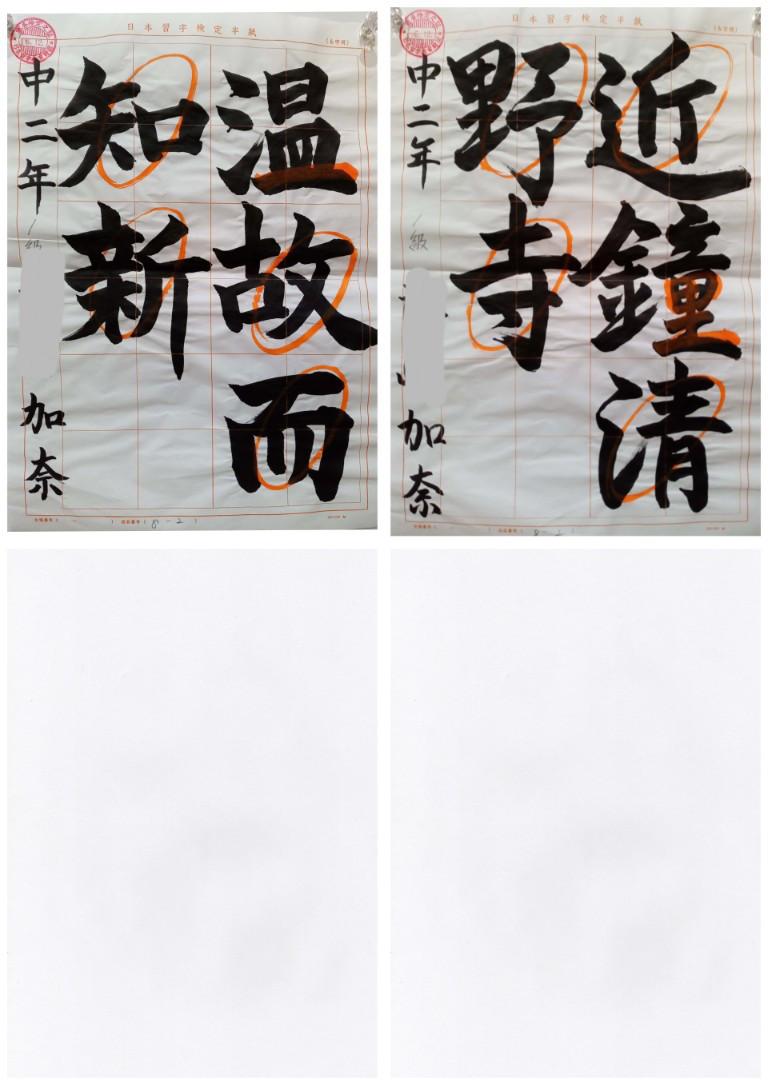 日本習字検定半紙
温故而
知新
中二年
一級
加奈
日本習字検定半紙
近鐘清
野寺
中二年
一級
加奈